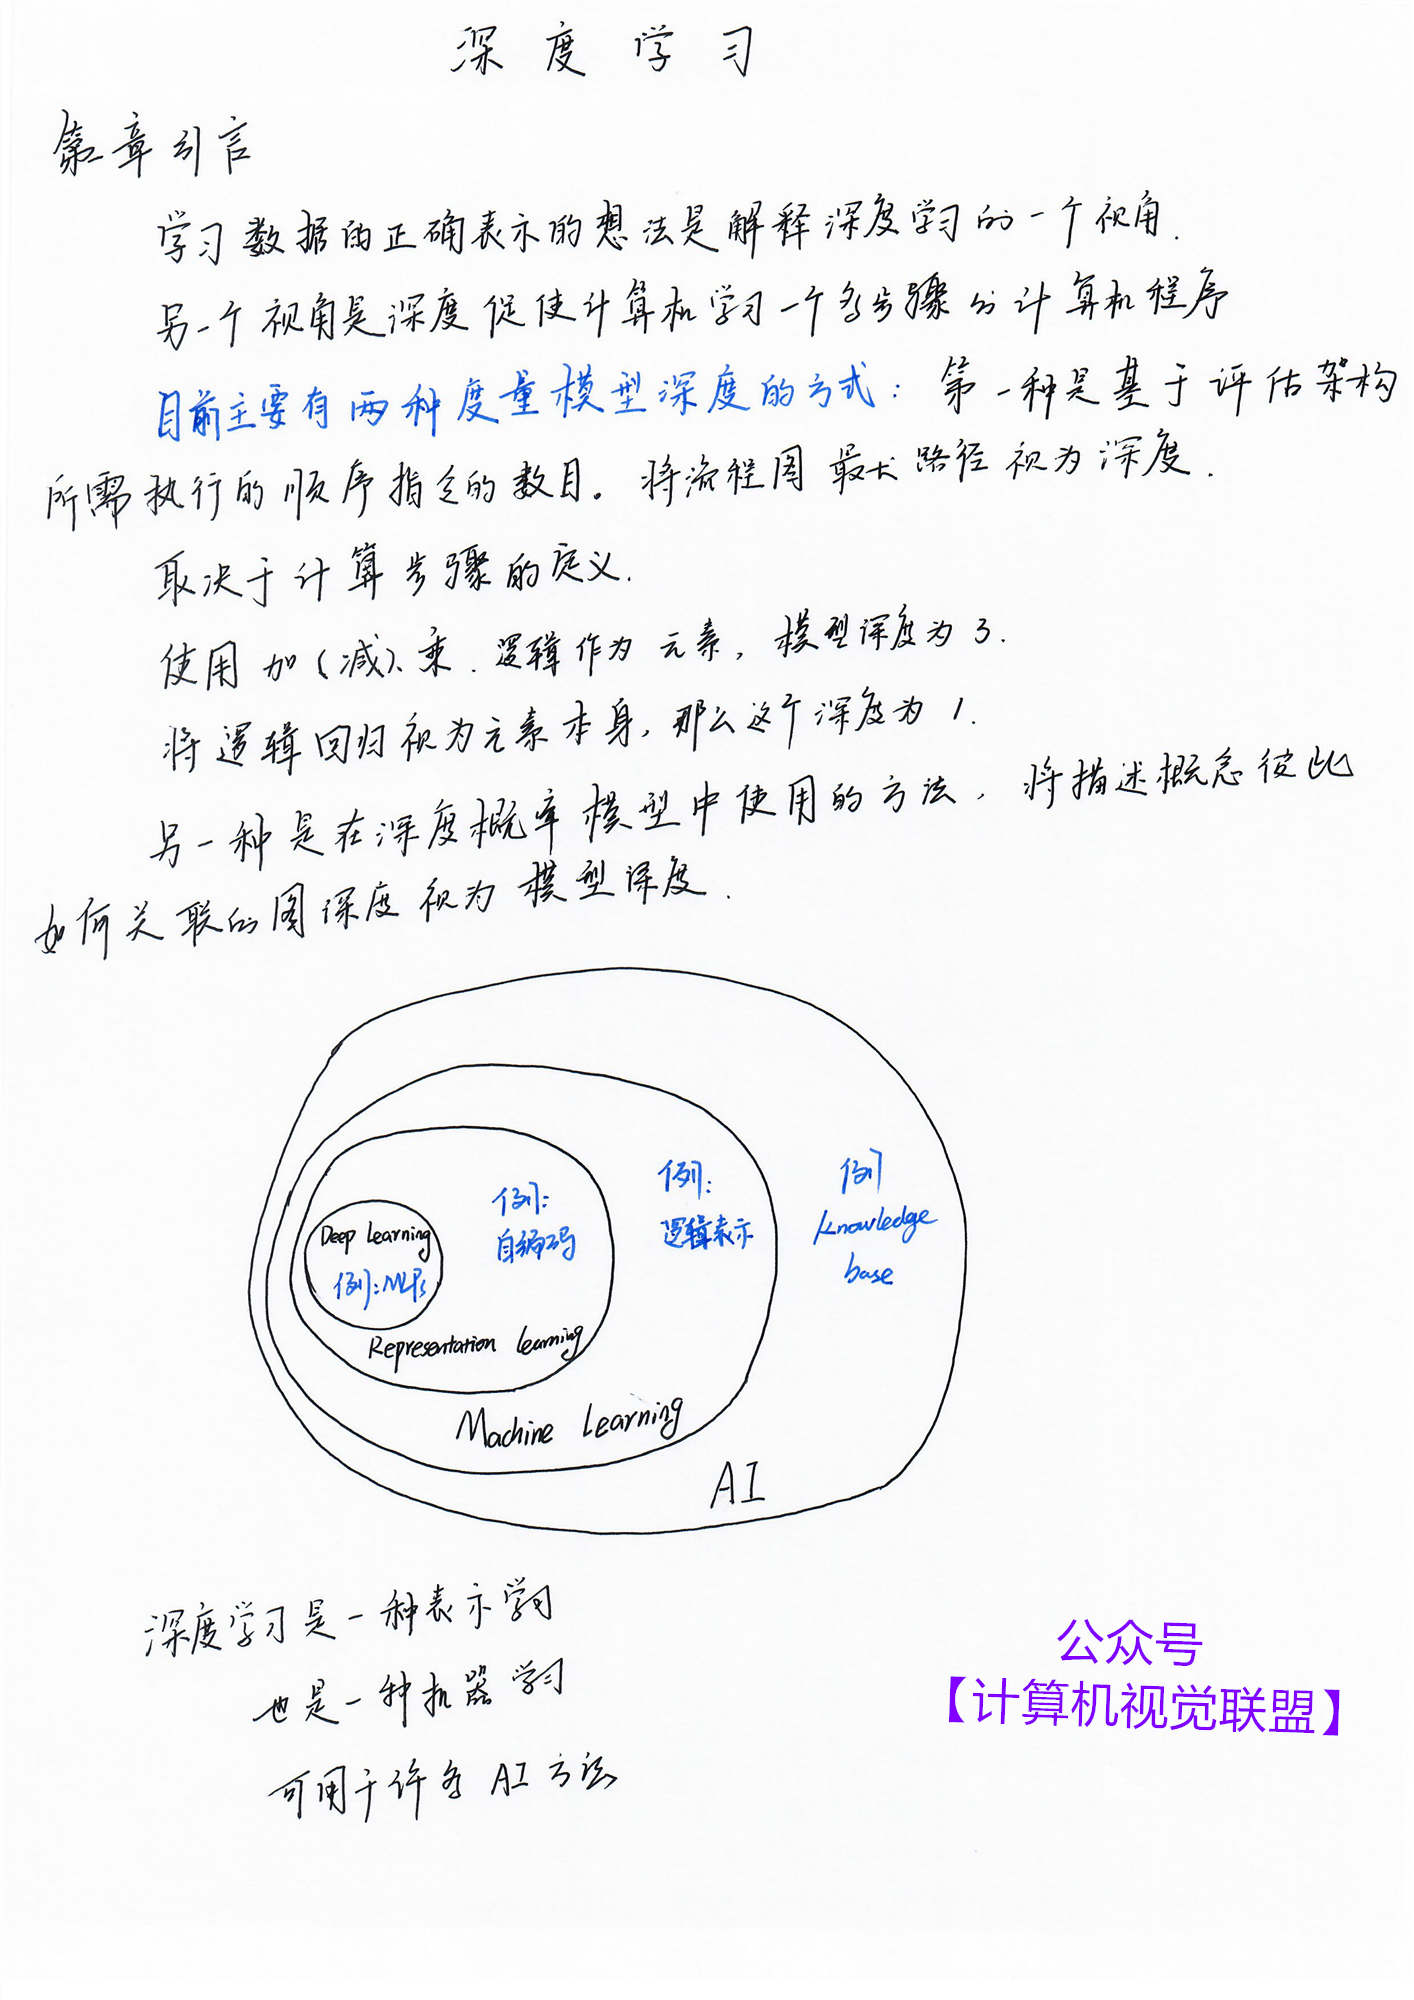 深度学习
第一章 引言
学习数据的正确表示的想法是解释深度学习的一个视角.
另一个视角是深度促使计算机学习一个多步骤的计算机程序
目前主要有两种度量模型深度的方式: 第一种是基于评估架构
所需执行的顺序指令的数目。将流程图最长路径视为深度.
取决于计算步骤的定义.
使用加(减)、乘.逻辑作为元素, 模型深度为3.
将逻辑回归视为元素本身, 那么这个深度为1.
另一种是在深度概率模型中使用的方法, 将描述概念彼此
如何关联的图深度视为模型深度.
Deep Learning
例:MLPs
例:
自编码
Representation Learning
例:
逻辑表示
Machine Learning
例
knowledge
base
AI
深度学习是一种表示学习
也是一种机器学习
可用于许多AI方法
公众号
【计算机视觉联盟】